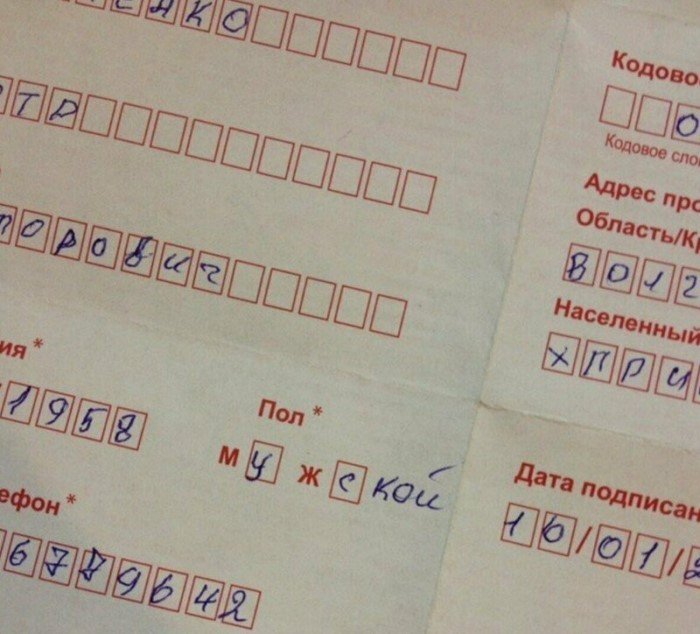 ЕНКО
ТР
ТОРОВИЧ
ия *
1958
ефон *
6779642
Пол *
МуЖской
Кодово
О
Кодовое сло
Адрес про
Область/Кр
ВОЛГ
Населенный
ХПРИ
Дата подписан
16/01/2